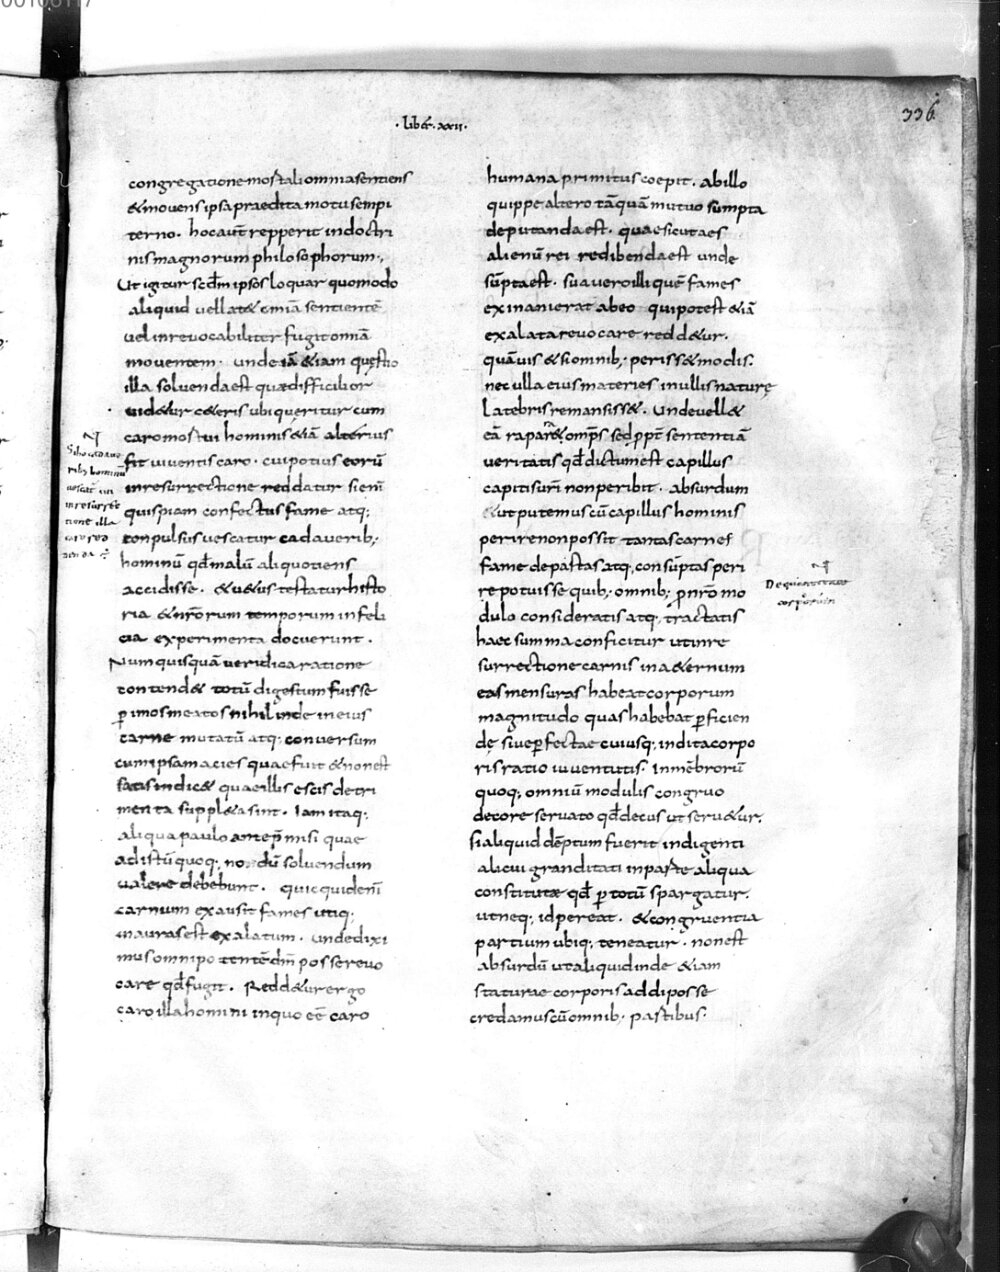 00106117
336
·liber·xxii·
congregatione mortali omnia sentiens
&movens ipsa praedita motu sempi
terno. hoc aut repperit in doctri
nis magnorum philosophorum.,
Ut igitur scdm ipsos loquar quomodo
aliquid vel lat& omnia sentiente
vel inrevocabiliter fugit omnia
moventem. unde ia &iam questio
illa solvenda est quae difficilior
vid&ur c&eris ubi queritur cum
caro mortui hominis &ia alterius
fit viventis caro. cui potius eoru
in resurrectione reddatur si eni
quispiam confectus fame atq;
conpulsus vescatur cadaverib;
hominu qd malu aliquotiens
accidisse. &v&us testatur histo
ria &nrorum temporum infeli
cia experimenta docuerunt.
Num quisqua veridica ratione
contend& totu digestum fuisse
p imos meatos nihil inde in eius
carne mutatu atq; conversum
cum ipsa macies quae fuit &non est
satis indic& quae illis escis detri
menta suppl&a sint. Iam itaq;
aliqua paulo ante pmisi quae
ad istu quoq; nodu solvendum
valere debebunt. quicquid eni
carnum exausit fames utiq;
in auras est exalatum. unde dixi
mus omnipotente dm posse revo
care qd fugit. Redd&ur ergo
caro illa homini in quo ee caro
humana primitus coepit. ab illo
quippe altero taqua mutuo sumpta
deputanda est. quae sicut aes
alienu rei redibenda est unde
supta est. sua vero illi que fames
exinanierat ab eo qui potest &ia
exalata revocare redd&ur.
quavis &si omnib; periss& modis.
nec ulla eius materies in ullis nature
latebris remansiss&. Unde vell&
ea rapar& omps sed ppt sententia
veritatis qd dictum est capillus
capitis uri non peribit. absurdum
e ut putemus cu capillus hominis
perire non possit tantas carnes
fame depastas atq; consuptas peri
re potuisse quib; omnib; p nro mo
dulo consideratis atq; tractatis
haec summa conficitur ut in re
surrectione carnis in a&ernum
eas mensuras habeat corporum
magnitudo quas habebat pficien
de sive pfectae cuiusq; indita corpo
ris ratio iuventutis. in mebroru
quoq; omniu modulis congruo
decore servato qd decus ut serv&ur.
si aliquid deptum fuerit indigenti
alicui granditati in parte aliqua
constitutae qd p totu spargatur.
ut neq; id pereat. &congruentia
partium ubiq; teneatur. non est
absurdu ut aliquid inde &iam
staturae corporis addi posse
credamus cu omnib; partibus.
Si ho cadave
rib; hominu
vescat
in resurrec
tione illa
caro red
denda
De quantitate
corporum